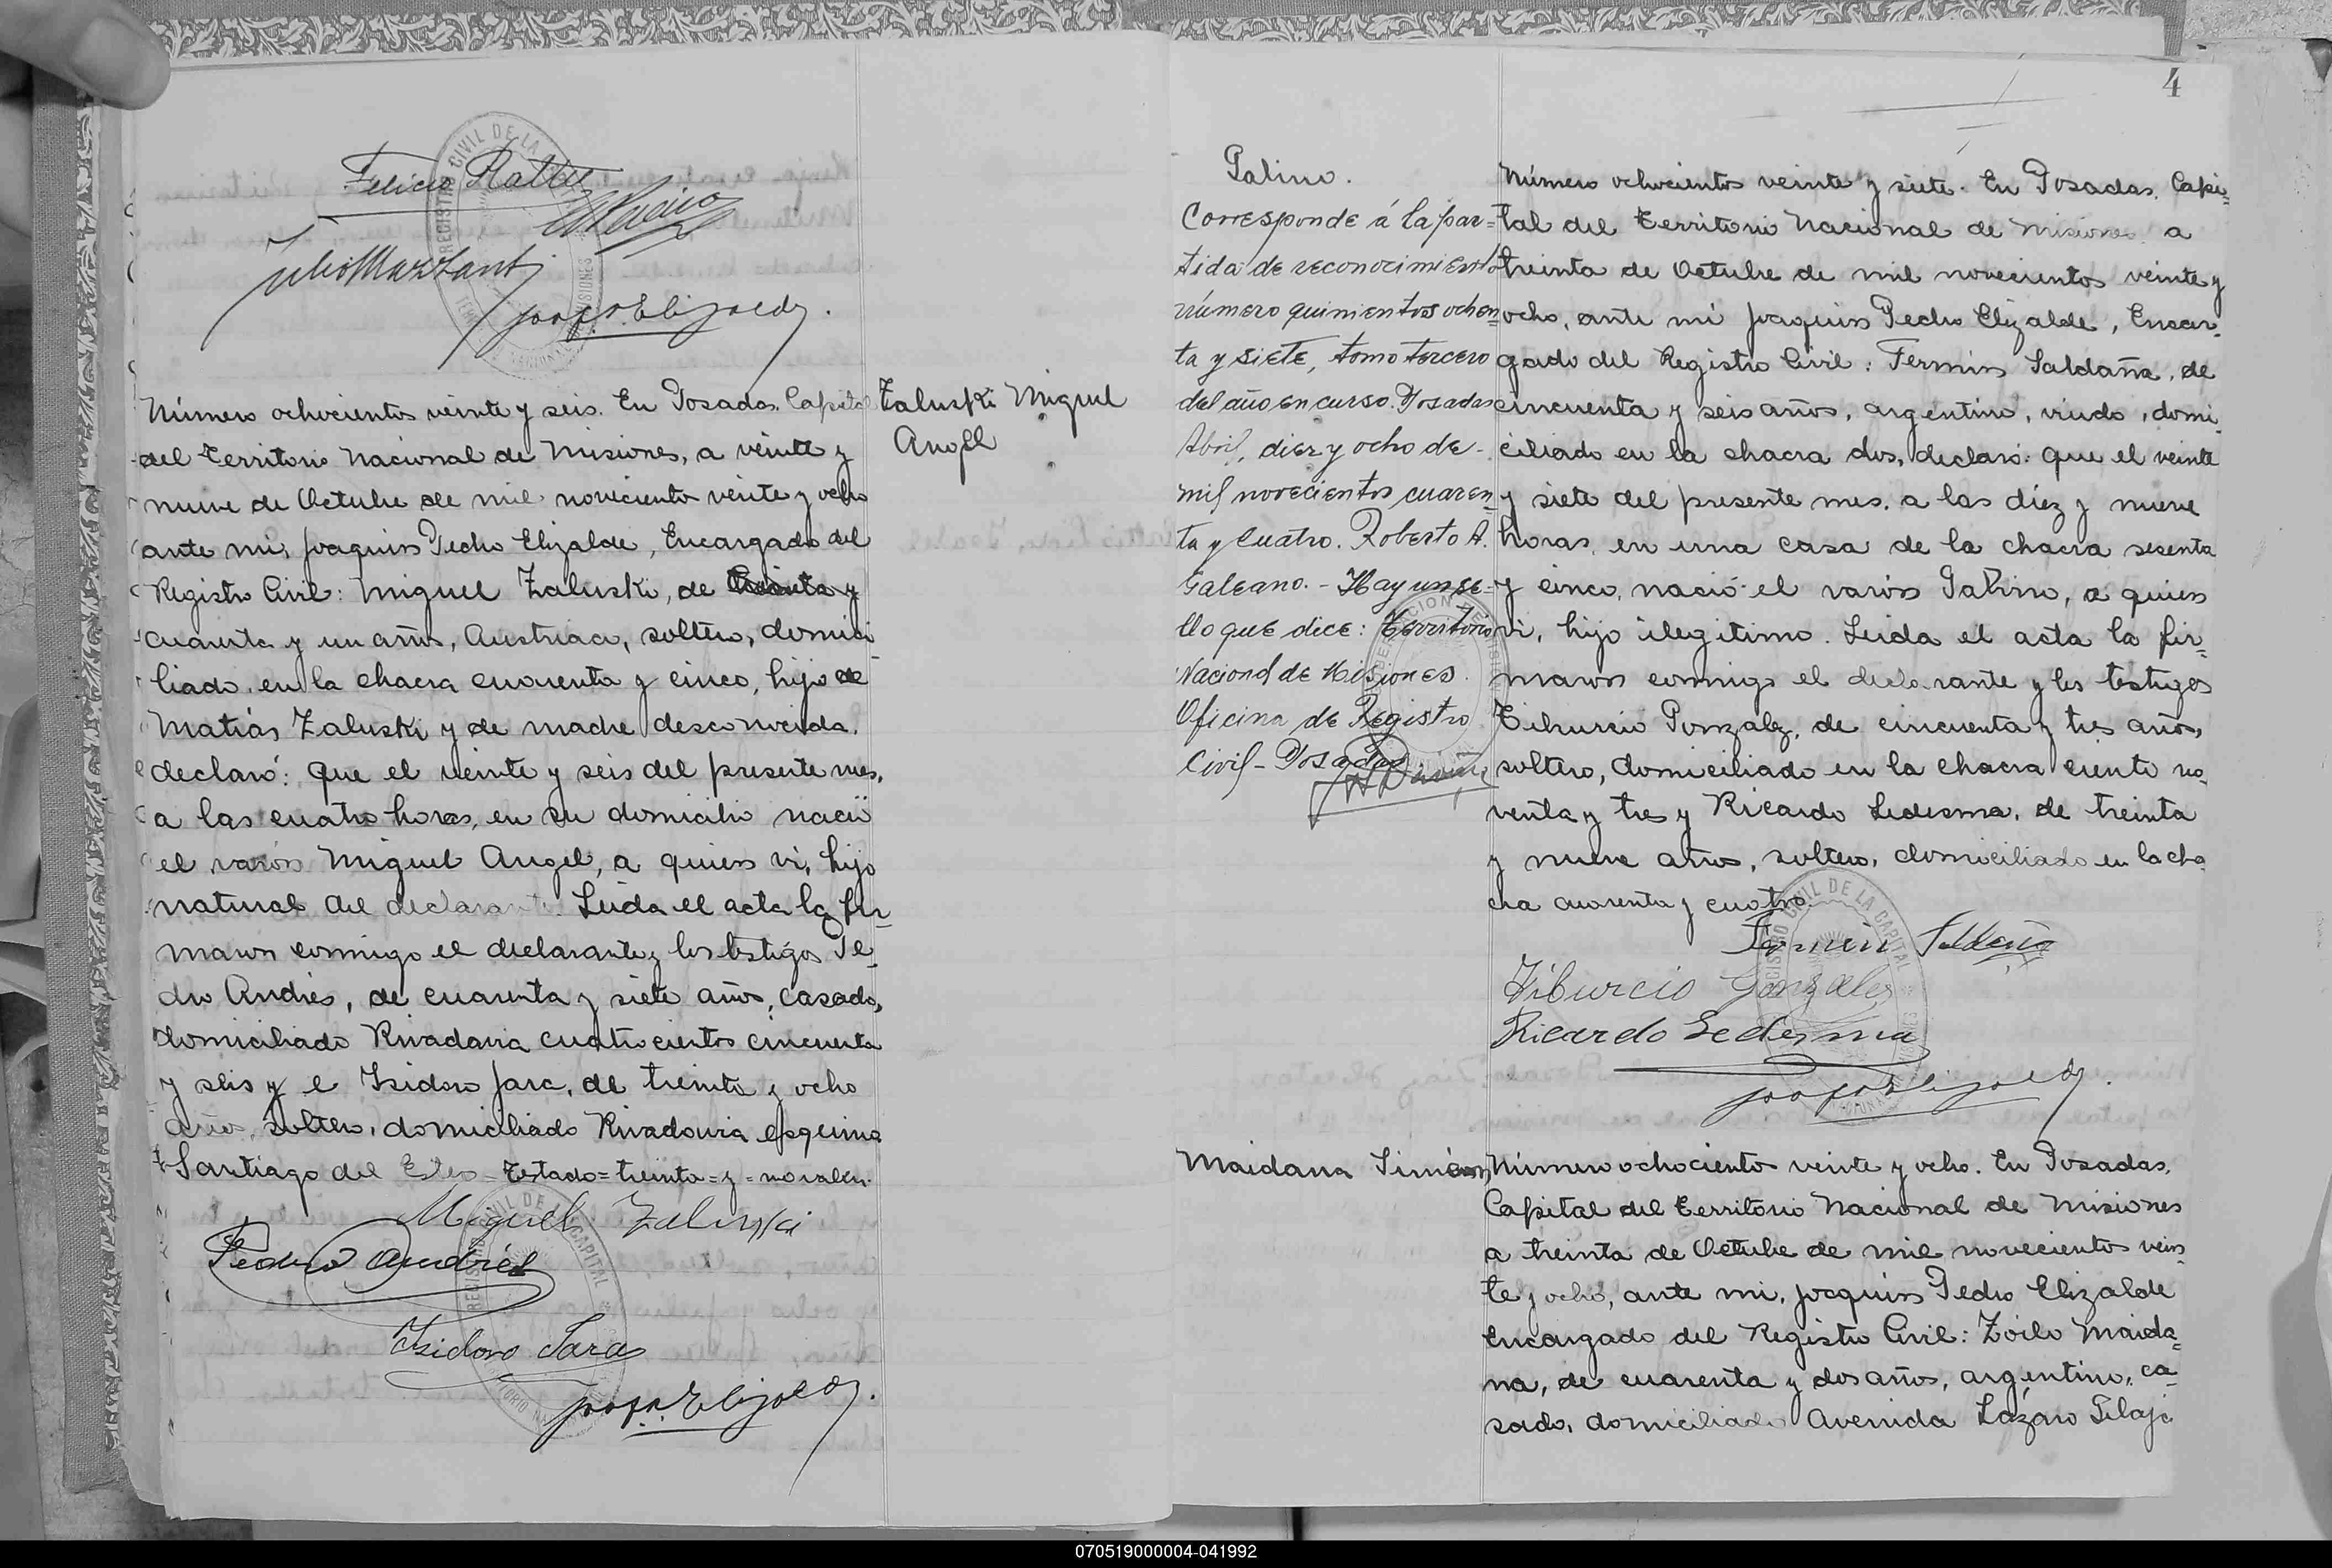 Felicio
Julio Marzanti
Joaq. P. Elizalde.
Número ochocientos veinte y seis. En Posadas, Capital
del Territorio Nacional de Misiones, a veinte y
nueve de Octubre de mil noveciento veinte y ocho
ante mi, Joaquin Pedro Elizalde, Encargado del
Registro Civil: Miguel Zaluski, de treinta y
cuarenta y un años, Austriaco, soltero, domici
liado, en la chacra cuarenta y cinco, hijo de
Matias Zaluski y de madre desconocida,
declaró: que el veinte y seis del presente mes,
a las cuatro horas, en su domicilio nació
el varón Miguel Angel, a quien vi, hijo
natural del declarante. Leida el acta la fir-
maron conmigo el declarante y los testigos Pe-
dro Andrés, de cuarenta y siete años, casado,
domiciliado Rivadavia cuatrocientos cincuenta
y seis y e Isidoro Jara, de treinta y ocho
años, soltero, domiciliado Rivadavia esquina
Santiago del Estero = Testado = treinta = y = no valen.
Miguel Zaluski
Pedro Andrés
Isidoro Jara
Joaq. P. Elizalde.
Zaluski Miguel
Angel
4
Palino.
Corresponde á la par=
tida de reconocimiento
número quinientos ochen=
ta y siete, tomo tercero
del año en curso. Posadas
Abril, diez y ocho de-
mil novecientos cuaren=
ta y cuatro. Roberto A.
Galeano. - Hay un se=
llo que dice: Territorio
Nacional de Misiones.
Oficina de Registro
Civil - Posadas
Número ochocientos veinte y siete. En Posadas, Capi-
tal del Territorio Nacional de Misiones, a
treinta de Octubre de mil novecientos veinte y
ocho, ante mi Joaquin Pedro Elizalde, Encar-
gado del Registro Civil: Fermin Saldaña, de
cincuenta y seis años, argentino, viudo, domi-
ciliado en la chacra dos, declaró: que el veinte
y siete del presente mes, a las diez y nueve
horas, en una casa de la chacra sesenta
y cinco, nació el varón Palino, a quien
vi, hijo ilegitimo. Leida el acta la fir-
maron conmigo el declarante y los testigos
Tiburcio Gonzalez, de cincuenta y tres años,
soltero, domiciliado en la chacra ciento no-
venta y tres y Ricardo Ledesma, de treinta
y nueve años, soltero, domiciliado en la cha
cra cuarenta y cuatro.
Fermin Saldaña
Tiburcio Gonzalez
Ricardo Ledesma
Joaq. P. Elizalde.
Maidana Simeón
Número ochociento veinte y ocho. En Posadas,
Capital del Territorio Nacional de Misiones
a treinta de Octubre de mil novecientos vein
te y ocho, ante mi, Joaquin Pedro Elizalde
Encargado del Registro Civil: Zoilo Maida-
na, de cuarenta y dos años, argentino, ca-
sado, domiciliado Avenida Lázaro
070519000004-041992